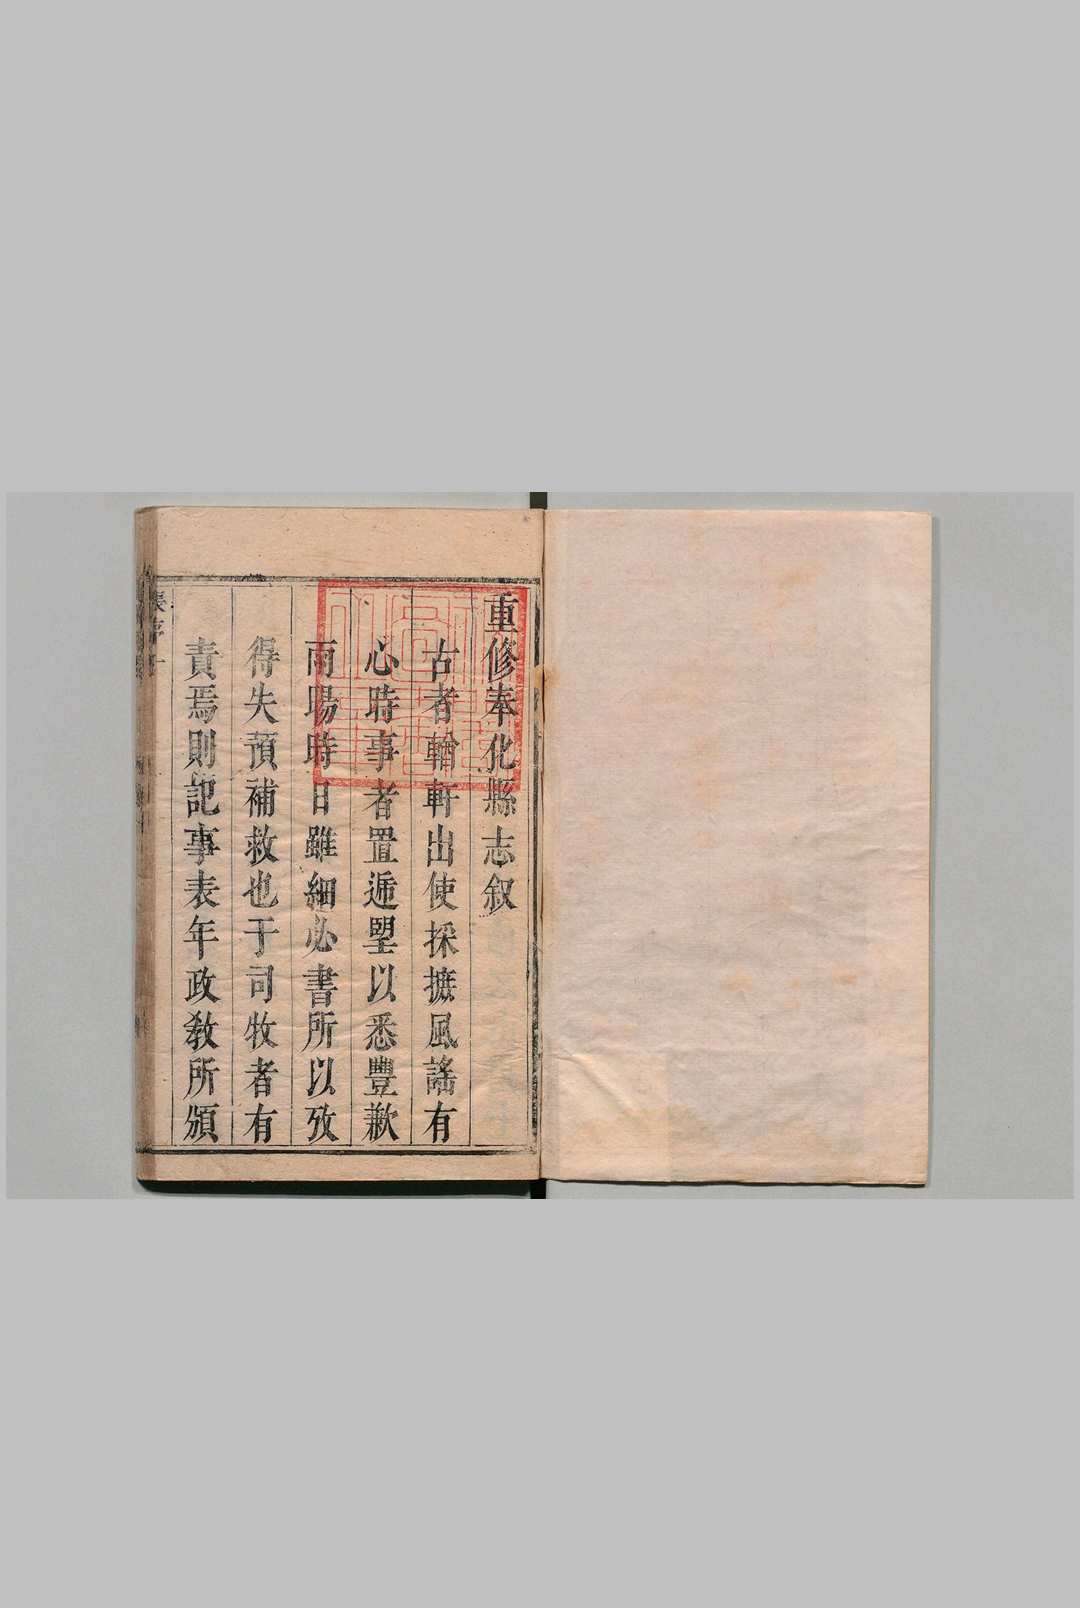 重修奉化縣志叙
古者輶軒出使採摭風謠有
心時事者置遞朢以悉豐歉
雨暘時日雖細必書所以攷
得失預補救也于司牧者有
責焉則記事表年政教所頒
張序 一